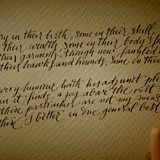 ry in their birth, some in their skill,
their wealth, some in their body's
their garments, though new-fangled
their hawks and hounds, some in their
very humour hath his adjunct
in it finds a joy above the rest
these particulars are not my
I better in one general best